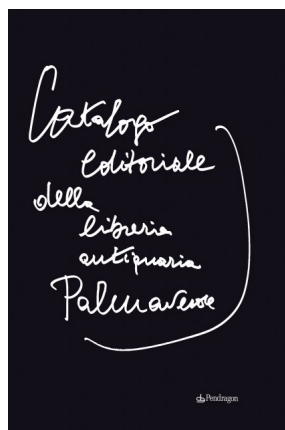 Catalogo
Editoriale
della
libreria
antiquaria
Palmaverde
Pendragon